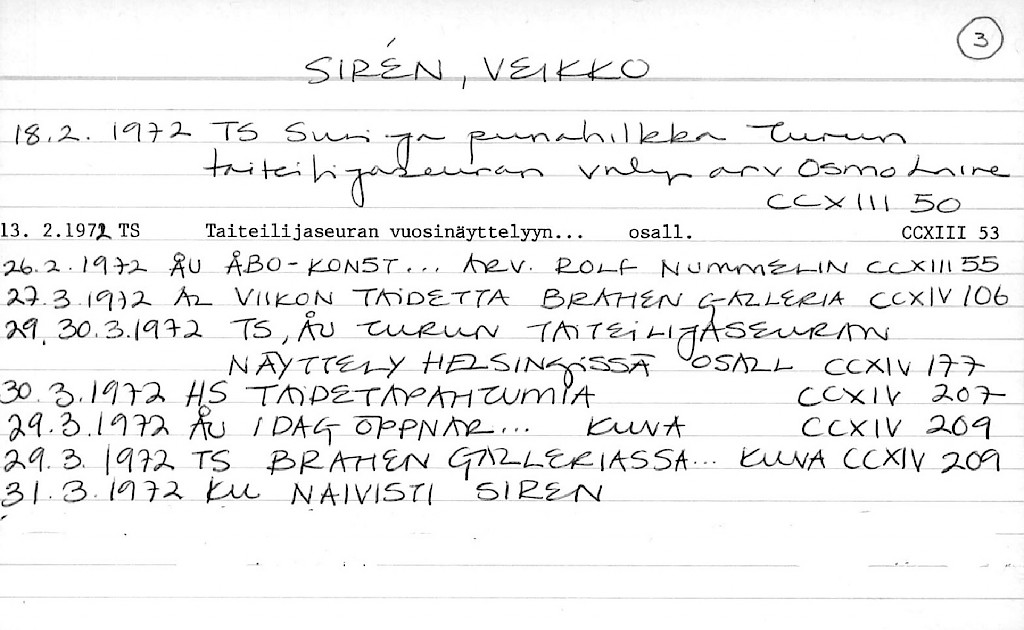 3
SIRÉN, VEIKKO
18.2. 1972 TS Susi ja punahilkka Turun
taiteilijaseuran vnäyt arv Osmo Laine
CCXIII 50
13. 2.1972 TS Taiteilijaseuran vuosinäyttelyyn... osall. CCXIII 53
26.2.1972 ÅU ÅBO-KONST... ARV. ROLF NUMMELIN CCXIII 55
27.3.1972 AL VIIKON TAIDETTA BRAHEN GALLERIA CCXIV 106
29, 30.3.1972 TS, ÅU TURUN TAITEILIJASEURAN
NÄYTTELY HELSINGISSÄ OSALL CCXIV 177
30.3.1972 HS TAIDETAPAHTUMIA CCXIV 207
29.3.1972 ÅU IDAG ÖPPNAR... KUVA CCXIV 209
29.3. 1972 TS BRAHEN GALLERIASSA... KUVA CCXIV 209
31.3.1972 KU NAIVISTI SIREN